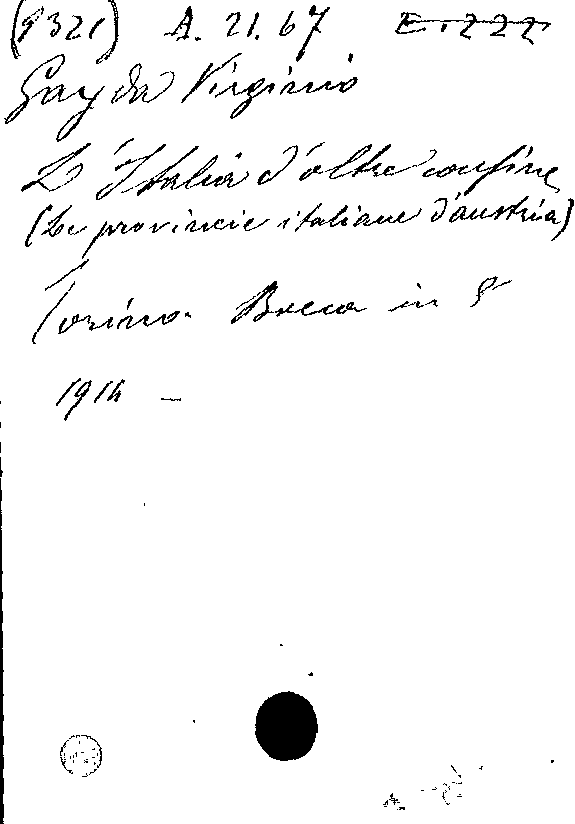 (9321) A. 21. 67 E. 222
Gayda Virginio
L'Italia d'oltre confine
(Le provincie italiane d'austria)
Torino. Bocca in 8
1914 —